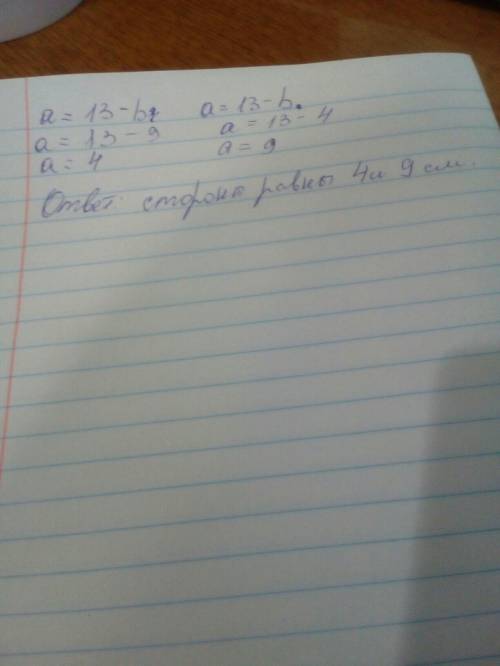 a = 13 - b₁ a = 13 - b₂
a = 13 - 9 a = 13 - 4
a = 4 a = 9
Ответ: стороны равны 4 и 9 см.